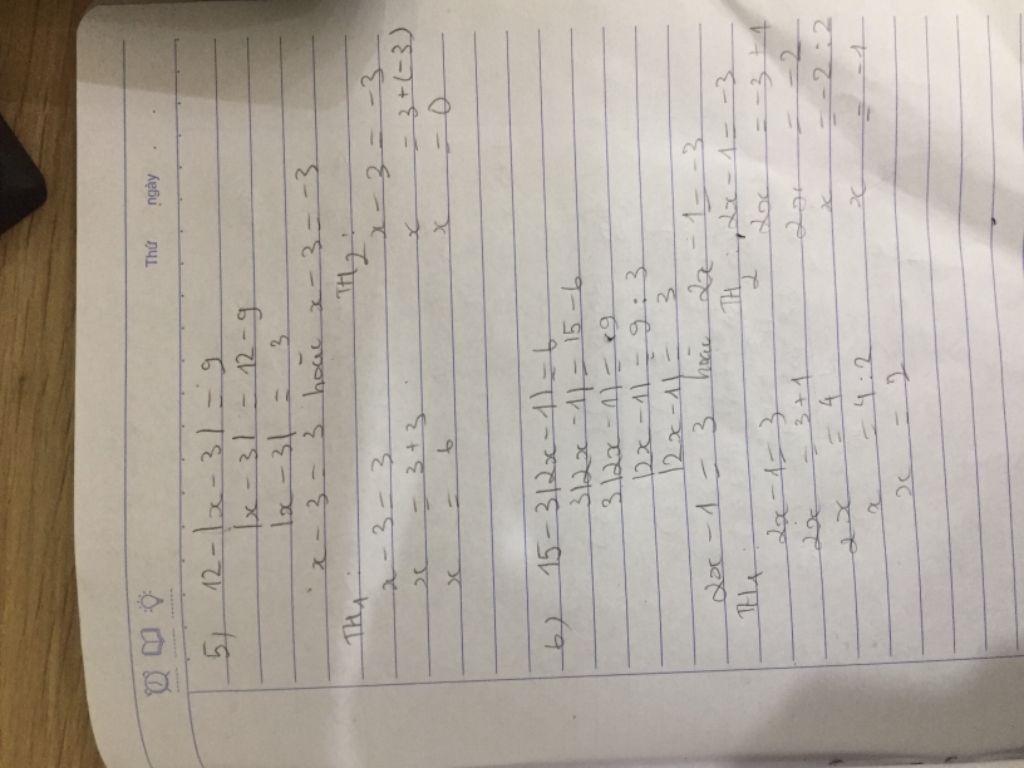 Thứ ngày
5) 12 - |x - 3| = 9
|x - 3| = 12 - 9
|x - 3| = 3
x - 3 = 3 hoặc x - 3 = -3
TH1 TH2:
x - 3 = 3 x - 3 = -3
x = 3 + 3 x = 3 + (-3)
x = 6 x = 0
6) 15 - 3|2x - 1| = 6
3|2x - 1| = 15 - 6
3|2x - 1| = 9
|2x - 1| = 9 : 3
|2x - 1| = 3
2x - 1 = 3 hoặc 2x - 1 = -3
TH1 TH2:
2x - 1 = 3 2x - 1 = -3
2x = 3 + 1 2x = -3 + 1
2x = 4 2x = -2
x = 4 : 2 x = -2 : 2
x = 2 x = -1